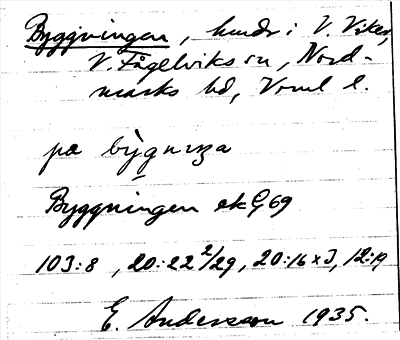 Byggningen, hmdr i V. Viker,
V. Fågelviks sn, Nord-
marks hd, Vrml l.
pa bygnıŋa
Byggningen ekG 69
103:8, 20:22 2/29, 20:16 x J, 12:19
E. Andersson 1935.